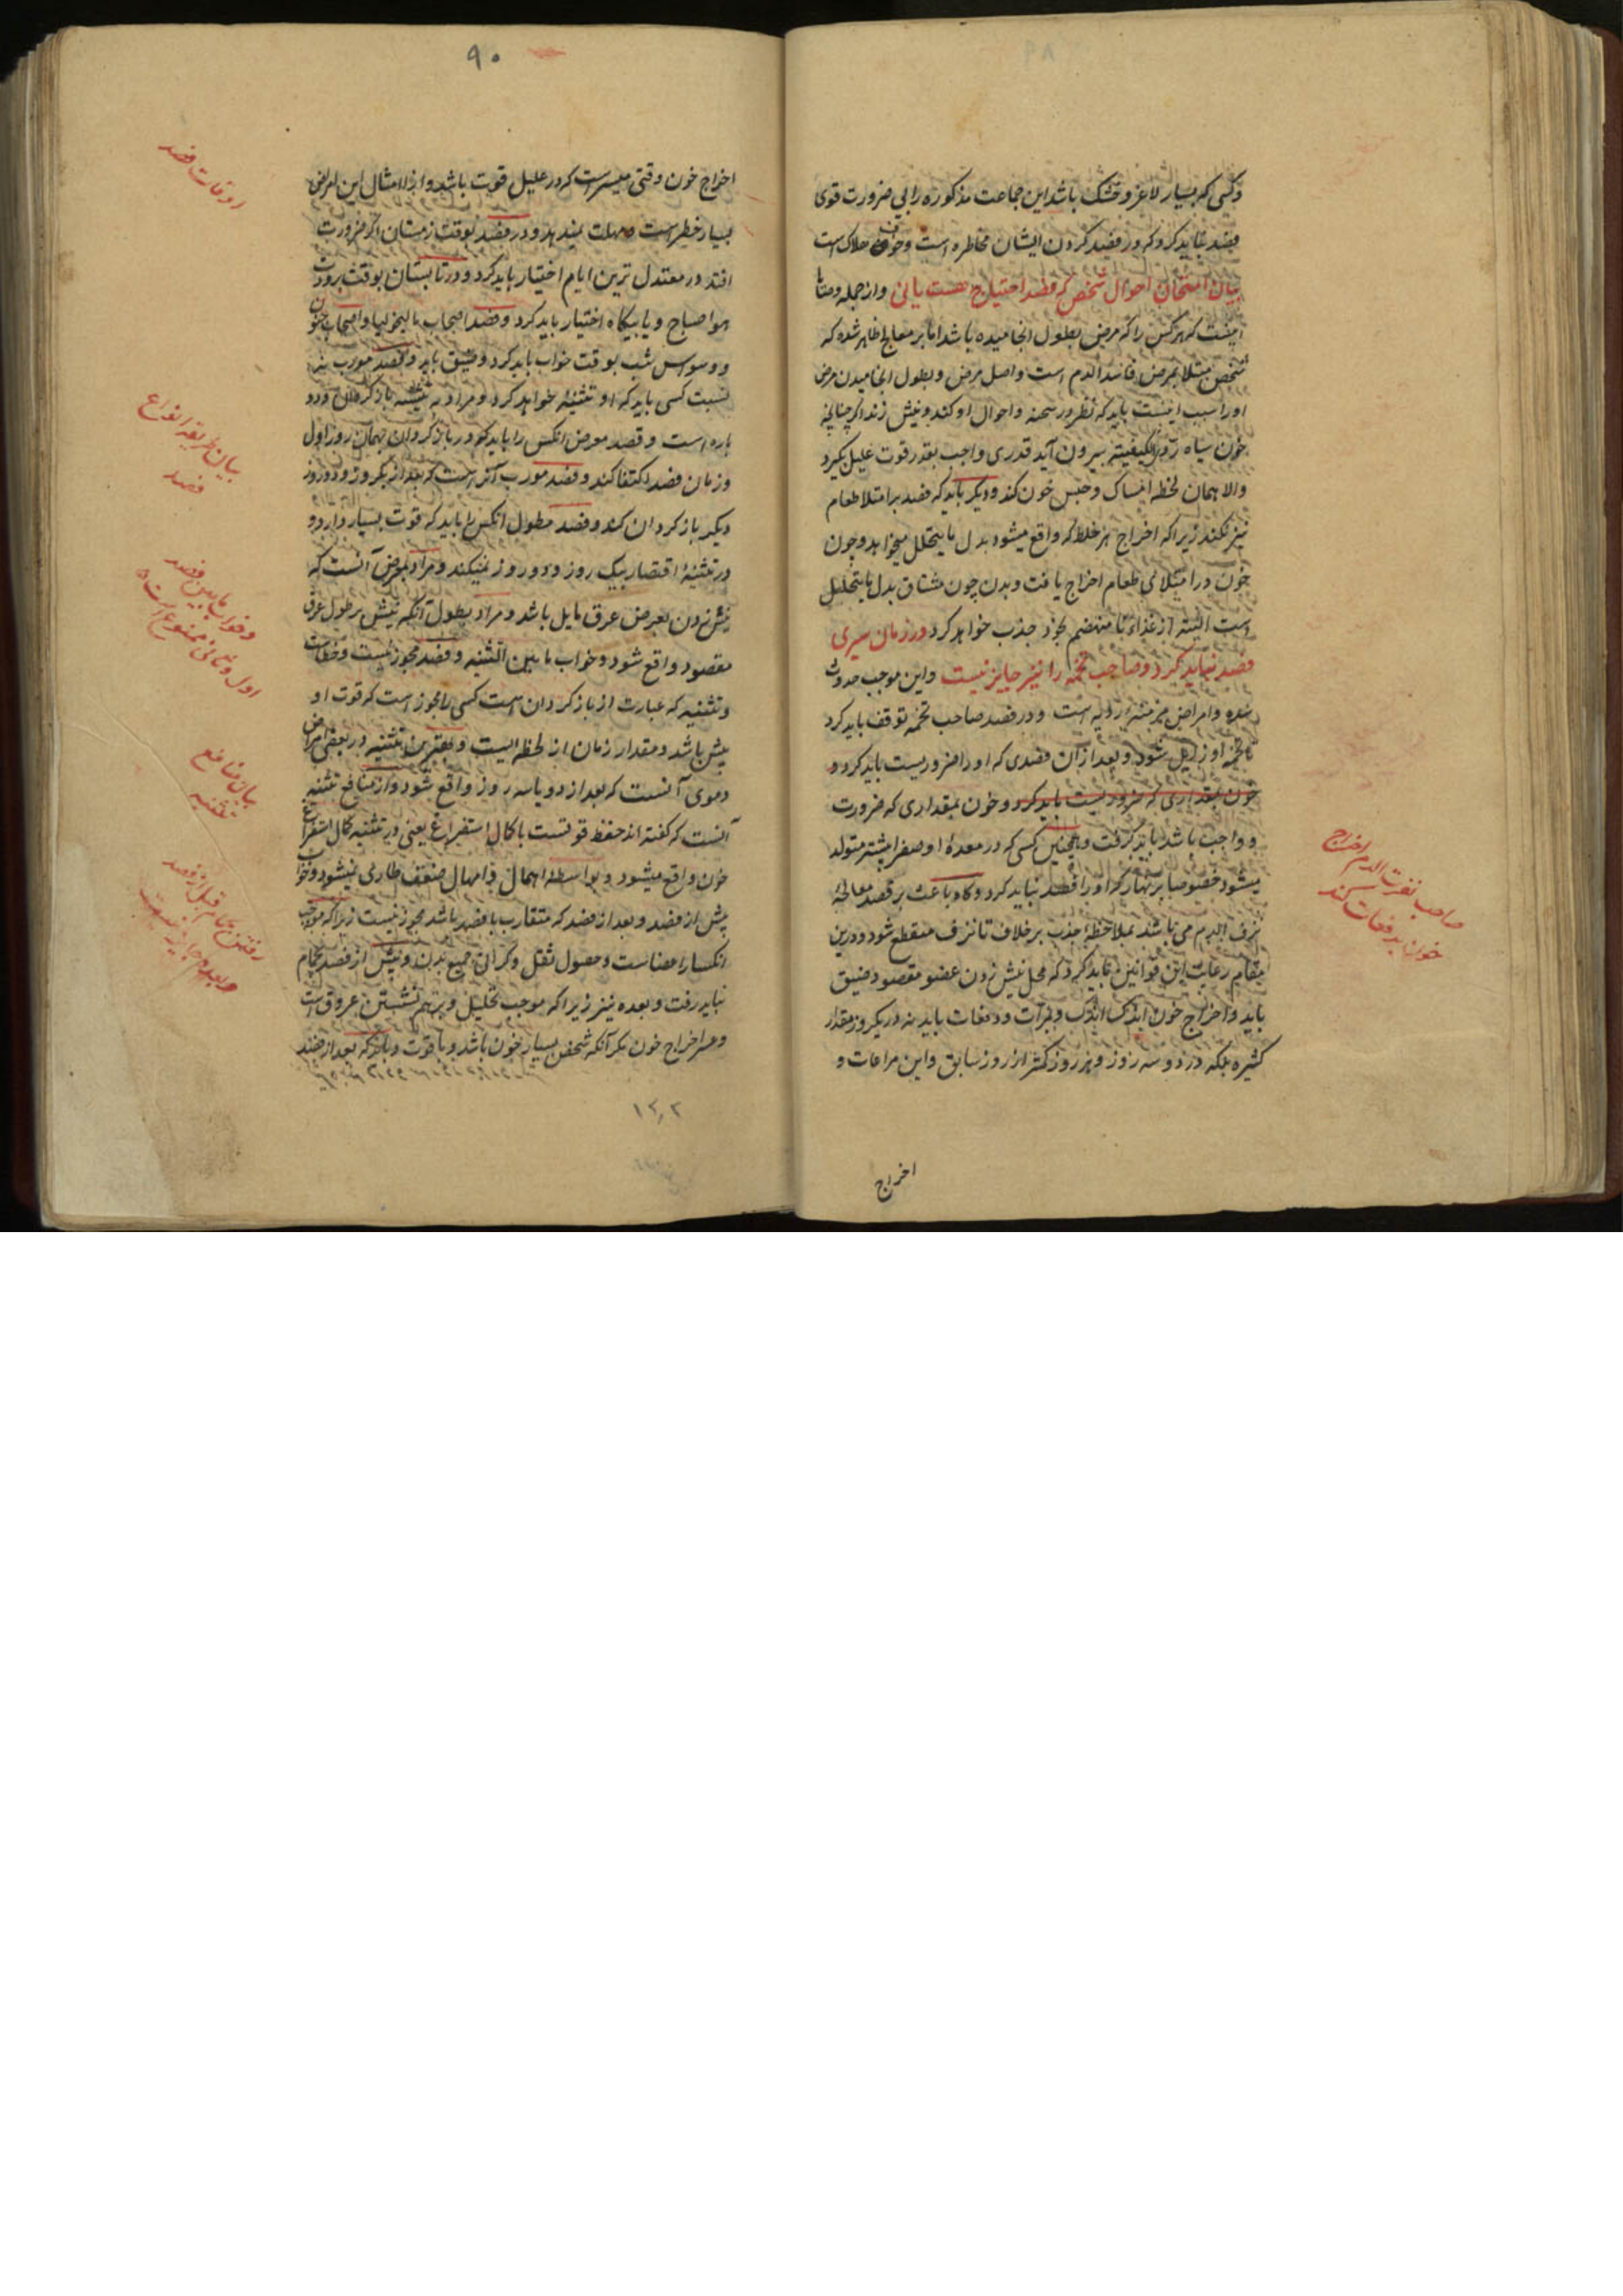 وکسی که بسیار لاغر و خشک باشد این جماعت مذکوره را بی ضرورت قوی
فصد نباید کرد که در فصد کردن ایشان مخاطره است و خوف هلاک است
بیان امتحان احوال شخص که فصد احتیاج هست یا نی و از جمله وصایا
اینست که هر کس را که مرض بطول انجامیده باشد اما بر معالج ظاهر شده که
شخص مبتلا بمرض فاسد الدم است و اصل مرض و بطول انجامیدن مرض
او را سبب اینست باید که نظر در سحنه و احوال او کند و نیش زند اگر چنانچه
خون سیاه ردی الکیفیته بیرون آید قدری واجب بقدر قوت علیل بگیرد
والا همان لحظه امساک و حبس خون کند و دیگر باید که فصد بر امتلا طعام
نیز نکند زیرا که اخراج هر خلط که واقع میشود بدل ما یتحلل میخواهد و چون
خون در امتلای طعام اخراج یافت و بدن چون مشتاق بدل ما یتحلل
است البته از غذاء نا منهضم بخود جذب خواهد کرد و در زمان سیری
فصد نباید کرد و صاحب تخمه را نیز جایز نیست و این موجب حدوث
سده و امراض مزمنه ردیه است و در فصد صاحب تخمه توقف باید کرد
تا تخمه او زایل شود و بعد از آن فصدی که او را ضروریست باید کرد و
خون بمقداری که ضروریست باید کرد و خون بمقداری که ضرورت
و واجب باشد باید گرفت و همچنین کسی که در معده او صفرا بیشتر متولد
میشود خصوصا بر نهار که او را فصد نباید کرد و گاه باعث بر فصد معالجهٔ
نزف الدم می باشد بملاحظهٔ جذب بر خلاف تا نزف منقطع شود و درین
مقام رعایت این قوانین باید کرد که محل نیش زدن عضو مقصود ضیق
باید و اخراج خون اندک اندک و بمرات و دفعات باید نه در یکروز مقدار
کثیره بلکه در دو سه روز و هر روز کمتر از روز سابق و این مراعات و
اخراج
صاحب نفث الدم اخراج
خون بدفعات کند
۹۰
اخراج خون وقتی میسر است که در علیل قوت باشد و از امثال این امراض
بسیار خطر است و مهلت نمیدهد و در فصد بوقت زمستان اگر ضرورت
افتد در معتدل ترین ایام اختیار باید کرد و در تابستان بوقت برودت
هوا صباح و یا بیگاه اختیار باید کرد و فصد اصحاب مالیخولیا و اصحاب جنون
و وسواس شب بوقت خواب باید کرد و ضیق باید و فصد مورب
نسبت کسی باید که او تثنیه خواهد کرد و مراد به تثنیه باز کردن دو
باره است و فصد معرض انکس را باید که در باز کردن بهمان روز اول
و زمان فصد اکتفا کند و فصد مورب آنراست که بعد از یکروز و دو روز
دیگر باز گردان کند و فصد مطول انکس را باید که قوت بسیار دارد و
در تثنیه اقتصار بیک روز و دو روز نمیکند و مراد بمعرض آنست که
نیش زدن بعرض عرق مایل باشد و مراد بطول آنکه نیش بر طول عرق
مقصود واقع شود و خواب ما بین التثنیه و فصد مجوز نیست و خطاست
و تثنیه که عبارت از باز کردان است کسی را مجوز است که قوت او
بیش باشد و مقدار زمان از لحظه ایست و بهترین تثنیه در بعضی امراض
دموی آنست که بعد از دو یا سه روز واقع شود و از منافع تثنیه
آنست که گفته اند حفظ قوتست با کمال استفراغ یعنی در تثنیه کمال استفراغ
خون واقع میشود و بواسطهٔ اهمال و امهال ضعف طاری نمیشود و خواب
پیش از فصد و بعد از فصد که متقارب بافصد باشد مجوز نیست زیرا که موجب
انکسار اعضاست و حصول ثقل و گرانی جمیع بدن و پیش از فصد بحمام
نباید رفت و بعده نیز زیرا که موجب تحلیل و برهم نشستن عروق است
و عسر اخراج خون مگر آنکه شخص بسیار خون باشد و با قوت و باید که بعد از فصد
اوقات فصد
بیان طریقه انواع
فصد
و خواب ما بین فصد
اول و ثانی ممنوع است
بیان منافع
تثنیه
رفتن بحمام قبل از فصد
و بعدهم جایز نیست
۱۲۰۲